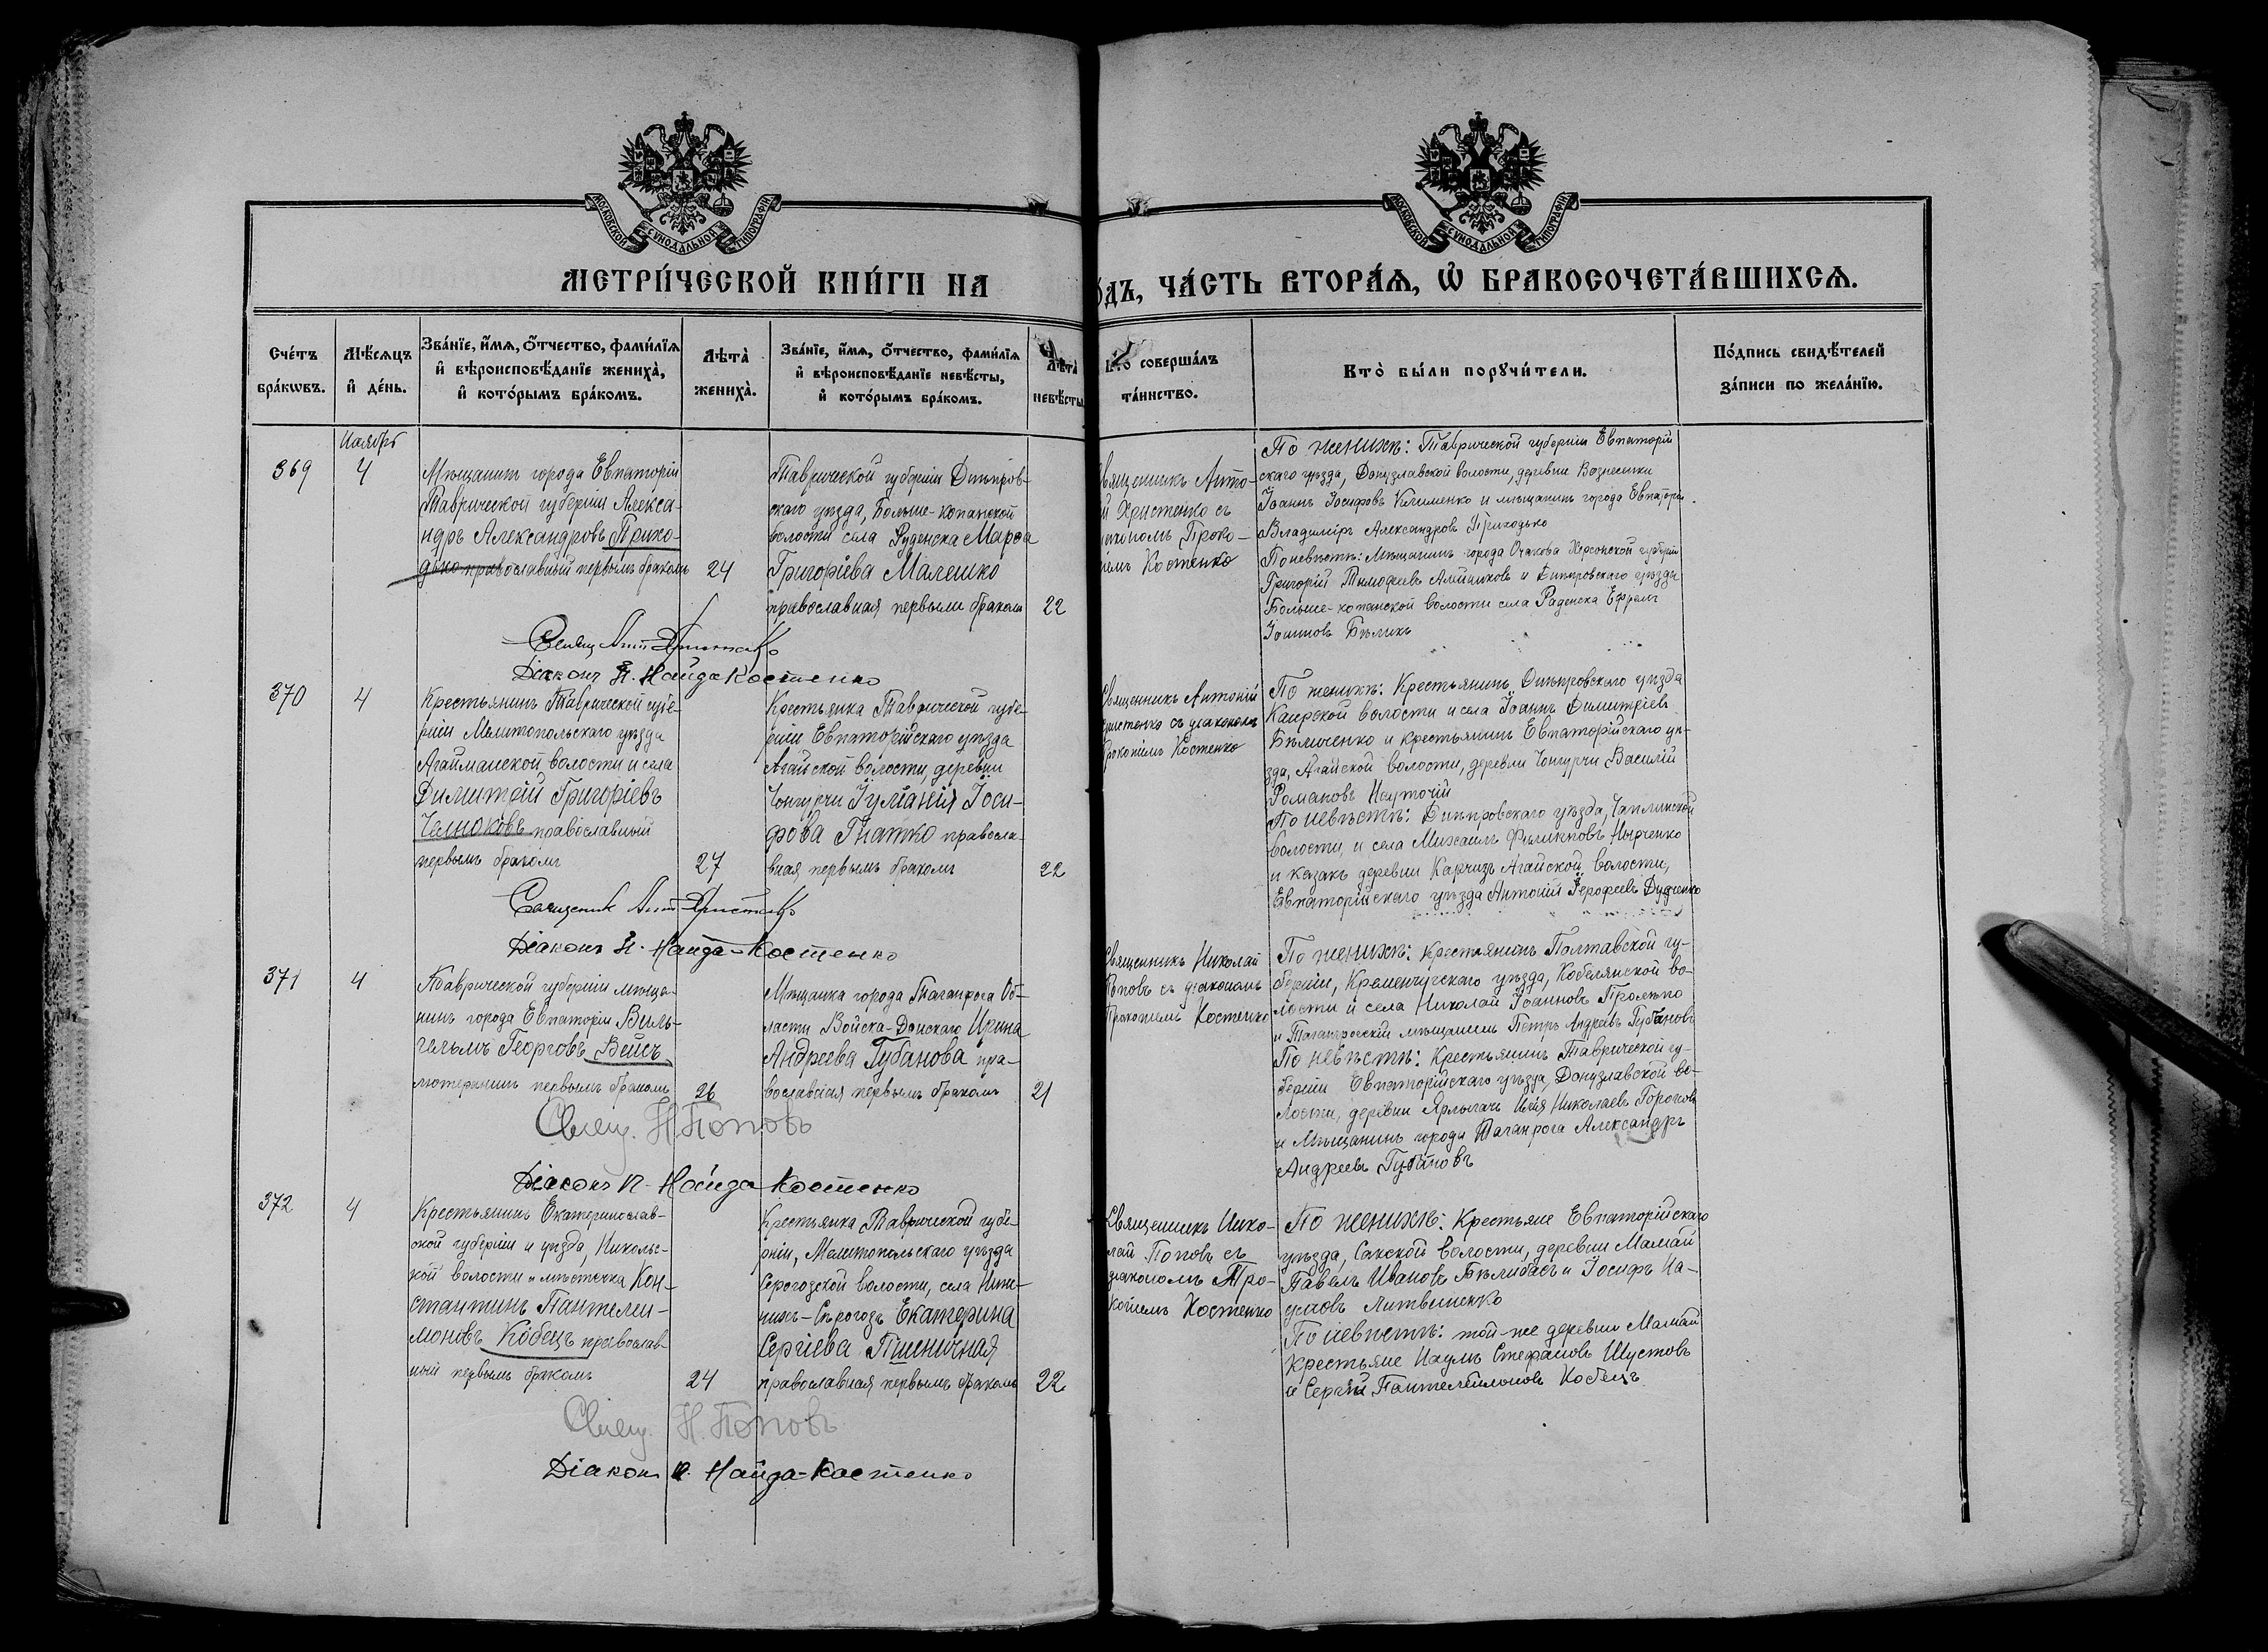 МОСКОВСКОЙ СѴНОДАЛЬНОЙ ТИПОГРАФІИ
МОСКОВСКОЙ СѴНОДАЛЬНОЙ ТИПОГРАФІИ
МЕТРИ́ЧЕСКОЙ КНИ́ГИ НА
О́ДЪ, ЧА́СТЬ ВТОРА́Ѧ, Ѽ БРАКОСОЧЕТА́ВШИХСѦ.
Сче́тъ бра́кѡвъ.
Мѣ́сѧцъ и҆ де́нь.
Зва́нїе, и҆́мѧ, ѻ҆́тчество, фами́лїѧ и҆ вѣроисповѣ́данїе жениха̀, и҆ кото́рымъ бра́комъ.
Лѣта̀ жениха̀.
Зва́нїе, и҆́мѧ, ѻ҆́тчество, фами́лїѧ и҆ вѣроисповѣ́данїе невѣ́сты, и҆ кото́рымъ бра́комъ.
Лѣта̀ невѣ́сты
Кто̀ соверша́лъ та́инство.
Кто̀ бы́ли порꙋчи́тели.
По́дпись свидѣ́телей за́писи по жела́нїю.
Ноябрь
369
4
Мѣщанинъ города Евпаторіи
Таврической губерніи Алекса-
ндръ Александровъ Прихо-
дько православный первымъ бракомъ
24
Таврической губерніи Днѣпров-
скаго уѣзда, Больше-Копанской
волости села Руденска Марѳа
Григоріева Малешко
православная первымъ бракомъ
22
вященникъ Анто-
й Христенко съ
іакономъ Проко-
іемъ Костенко
По женихѣ: Таврической губерніи Евпаторій
скаго уѣзда, Донузлавской волости, деревни Вознесенки
Іоаннъ Іосифовъ Клименко и мѣщанинъ города Евпаторіи
Владиміръ Александровъ Приходько
По невѣстѣ: Мѣщанинъ города Очакова Херсонской губерніи
Григорій Тимофеевъ и Днѣпровскаго уѣзда
Больше-копанской волости села Раденска Ефремъ
Іоанновъ Бѣликъ
Свящ Ант Христенко
Діаконъ П. Найда Костенко
370
4
Крестьянинъ Таврической губе-
рніи Мелитопольскаго уѣзда
Агайманской волости и села
Димитрій Григоріевъ
Челноковъ православный
первымъ бракомъ
27
Крестьянка Таврической губе-
рніи Евпаторійскаго уѣзда
Агайской волости, деревни
Чонгурчи Іуліанія Іоси-
фова Гнатко правосла-
вная, первымъ бракомъ
22
Священникъ Антоній
Христенко съ діакономъ
Прокопіемъ Костенко
По женихѣ: Крестьянинъ Днѣпровскаго уѣзда
Каирской волости и села Іоаннъ Димитріевъ
Бѣличенко и крестьянинъ Евпаторійскаго уѣ-
зда, Агайской волости, деревни Чонгурчи Василій
Романовъ
По невѣстѣ: Днѣпровскаго уѣзда, Чаплинской
волости и села Михаилъ Филипповъ
и казакъ деревни Агайской волости,
Евпаторійскаго уѣзда Антоній Іерофеевъ Дудченко
Священник Ант Христенко
Діаконъ П. Найда-Костенко
371
4
Таврической губерніи мѣща-
нинъ города Евпаторіи Виль-
гельмъ Георговъ Вейсъ
лютеранинъ первымъ бракомъ
26
Мѣщанка города Таганрога Об-
ласти Войска-Донскаго Ирина
Андреева Губанова пра-
вославная первымъ бракомъ
21
Священникъ Николай
Поповъ съ діакономъ
Прокопіемъ Костенко
По женихѣ: Крестьянинъ Полтавской гу-
берніи, Кременчугскаго уѣзда, Кобелянской во-
лости и села Николай Іоанновъ
и Таганрогскій мѣщанинъ Петръ Андреевъ Губановъ
По невѣстѣ: Крестьянинъ Таврической гу-
берніи Евпаторійскаго уѣзда, Донузлавской во-
лости, деревни Ярлыгачъ Илія Николаевъ
и Мѣщанинъ города Таганрога Александръ
Андреевъ Губановъ
Свящ. Н. Поповъ
Діаконъ П. Найда Костенко
372
4
Крестьянинъ Екатеринослав-
ской губерніи и уѣзда, Никольс-
кой волости и мѣстечка Кон-
стантинъ Пантелеи-
моновъ Кобецъ православ-
ный первымъ бракомъ
24
Крестьянка Таврической губе-
рніи, Мелитопольскаго уѣзда
Серогозской волости, села Ниж-
нихъ-Серогозъ Екатерина
Сергіева Пшеничная
православная первымъ бракомъ
22
Священникъ Нико-
лай Поповъ съ
діакономъ Про-
копіемъ Костенко
По женихѣ: Крестьяне Евпаторійскаго
уѣзда, Сакской волости, деревни Мамай
Павелъ Ивановъ Бѣлибасъ и Іосифъ На-
умовъ Литвиненко
По невѣстѣ: той-же деревни Мамай
крестьяне Наумъ Стефановъ Шустовъ
и Сергѣй Пантелеимоновъ Кобецъ
Свящ. Н. Поповъ
Діаконъ П. Найда-Костенко